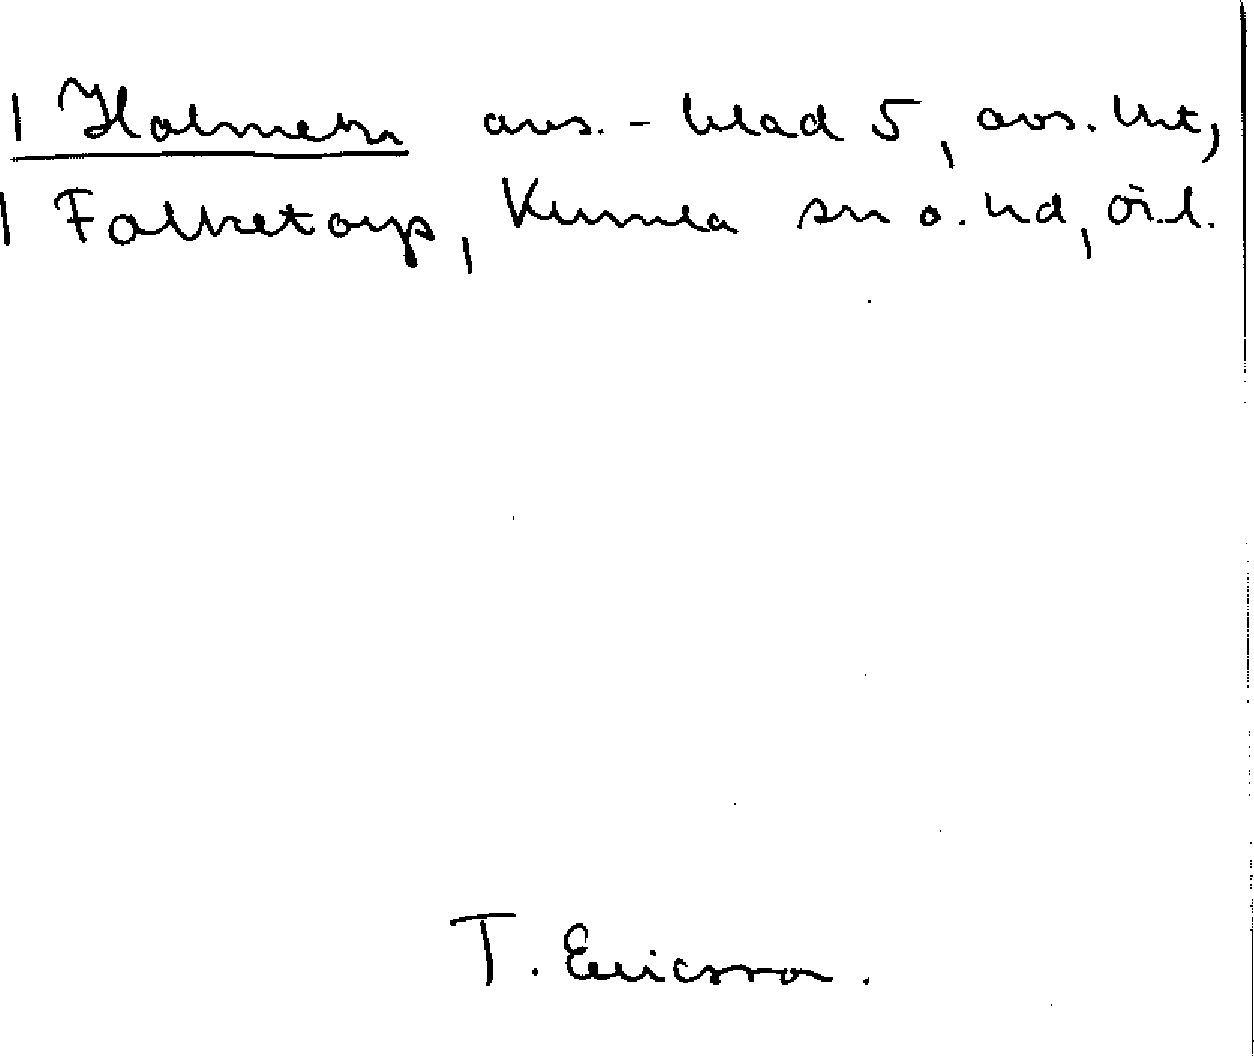 | Holmen avs.-blad 5, avs. Unt,
| Falketorp, Kumla sn o. hd, Ör.l.
T. Ericsson.